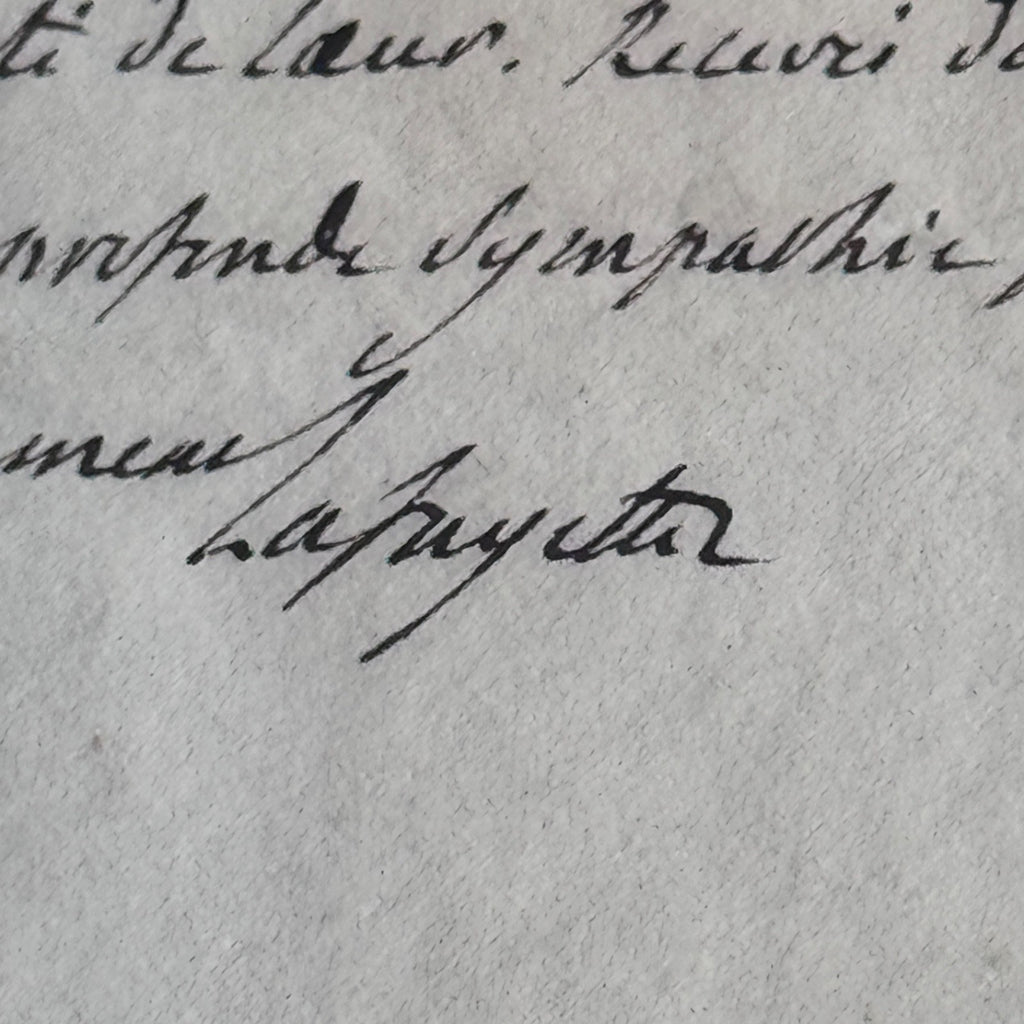 té de Cœur. Recevez
profonde Sympathie
Lafayette